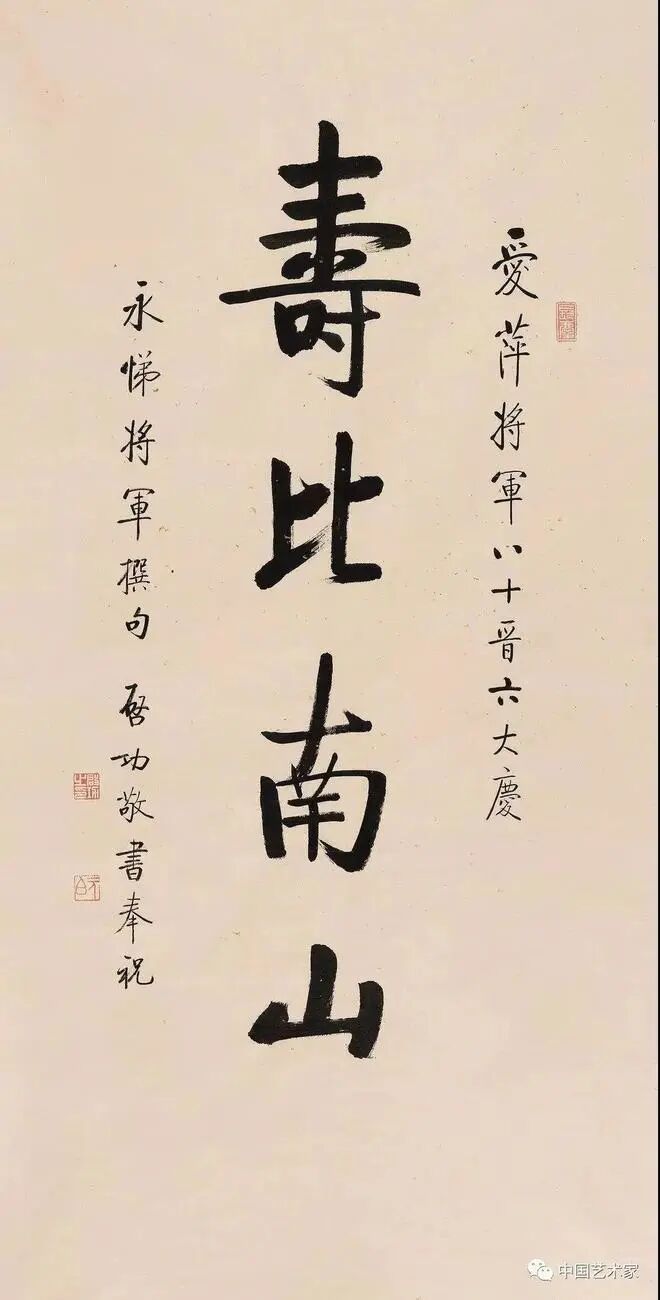 愛萍將軍八十晉六大慶
壽比南山
永悌將軍撰句 啓功敬書奉祝
中国艺术家